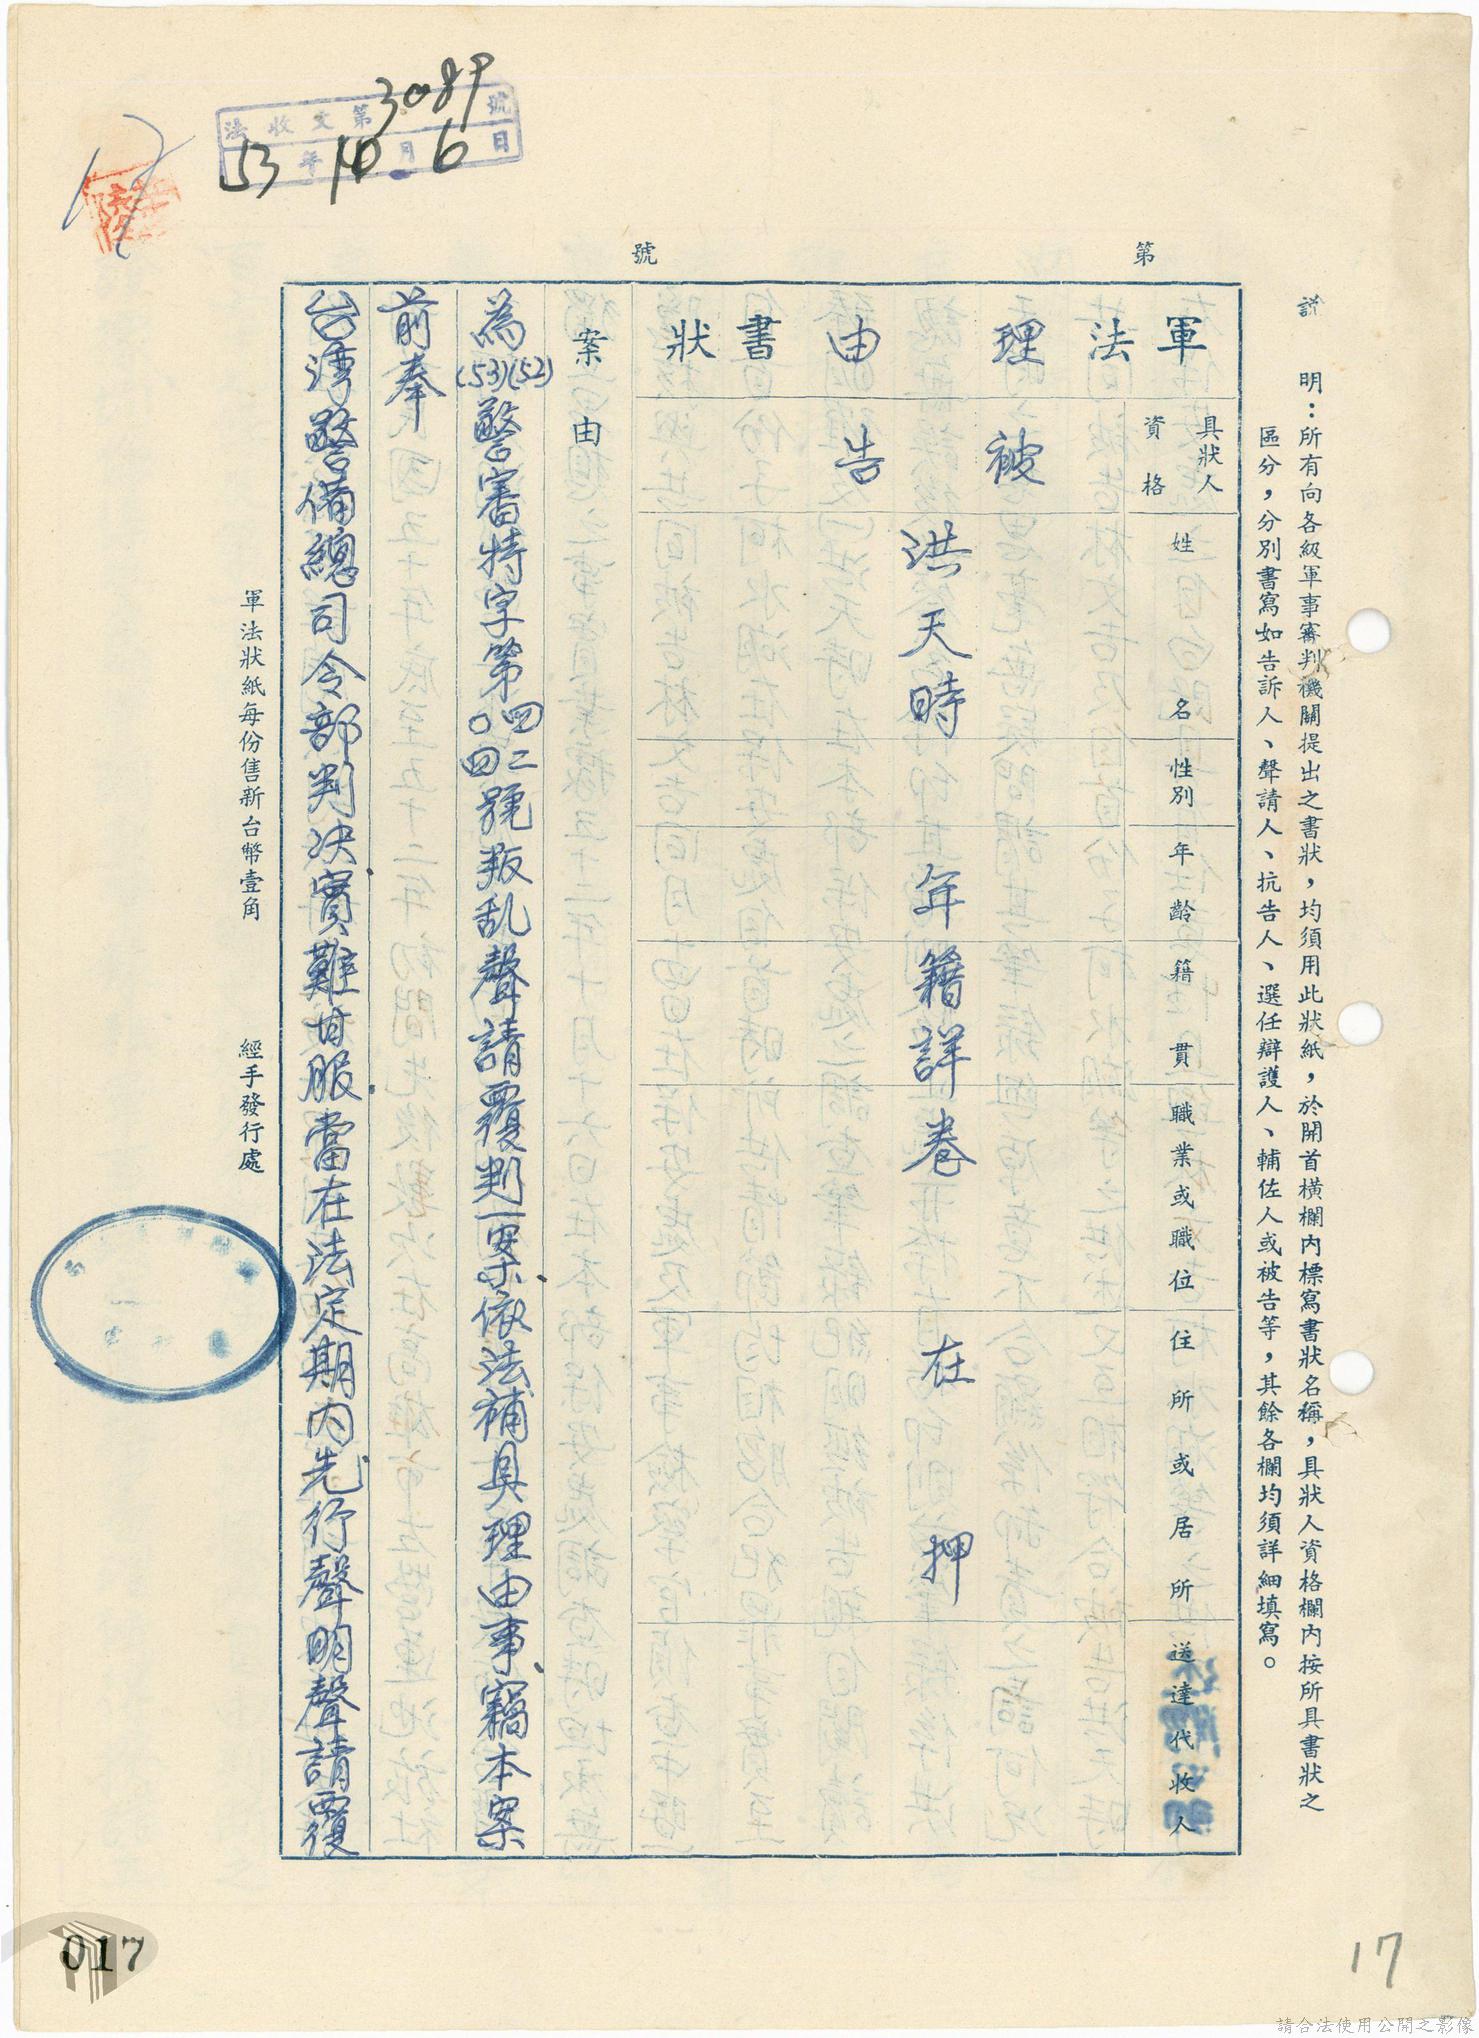 法收文第3089號
53年10月6日
第　號
說　明：所有向各級軍事審判機關提出之書狀，均須用此狀紙，於開首橫欄內標寫書狀名稱，具狀人資格欄內按所具書狀之
區分，分別書寫如告訴人、聲請人、抗告人、選任辯護人、輔佐人或被告等，其餘各欄均須詳細填寫。
軍法理由書狀
具狀人
資格
姓名
性別
年齡
籍貫
職業或職位
住所或居所
送達代收人
被告
洪天時
年籍詳卷
在押
案由
為(53)(52)警審特字第四二〇四號叛乱聲請覆判一案依法補具理由事、竊本案
前奉
台灣警備總司令部判决實難甘服當在法定期內先行聲明聲請覆
軍法狀紙每份售新台幣壹角
經手發行處
017
17
請合法使用公開之影像